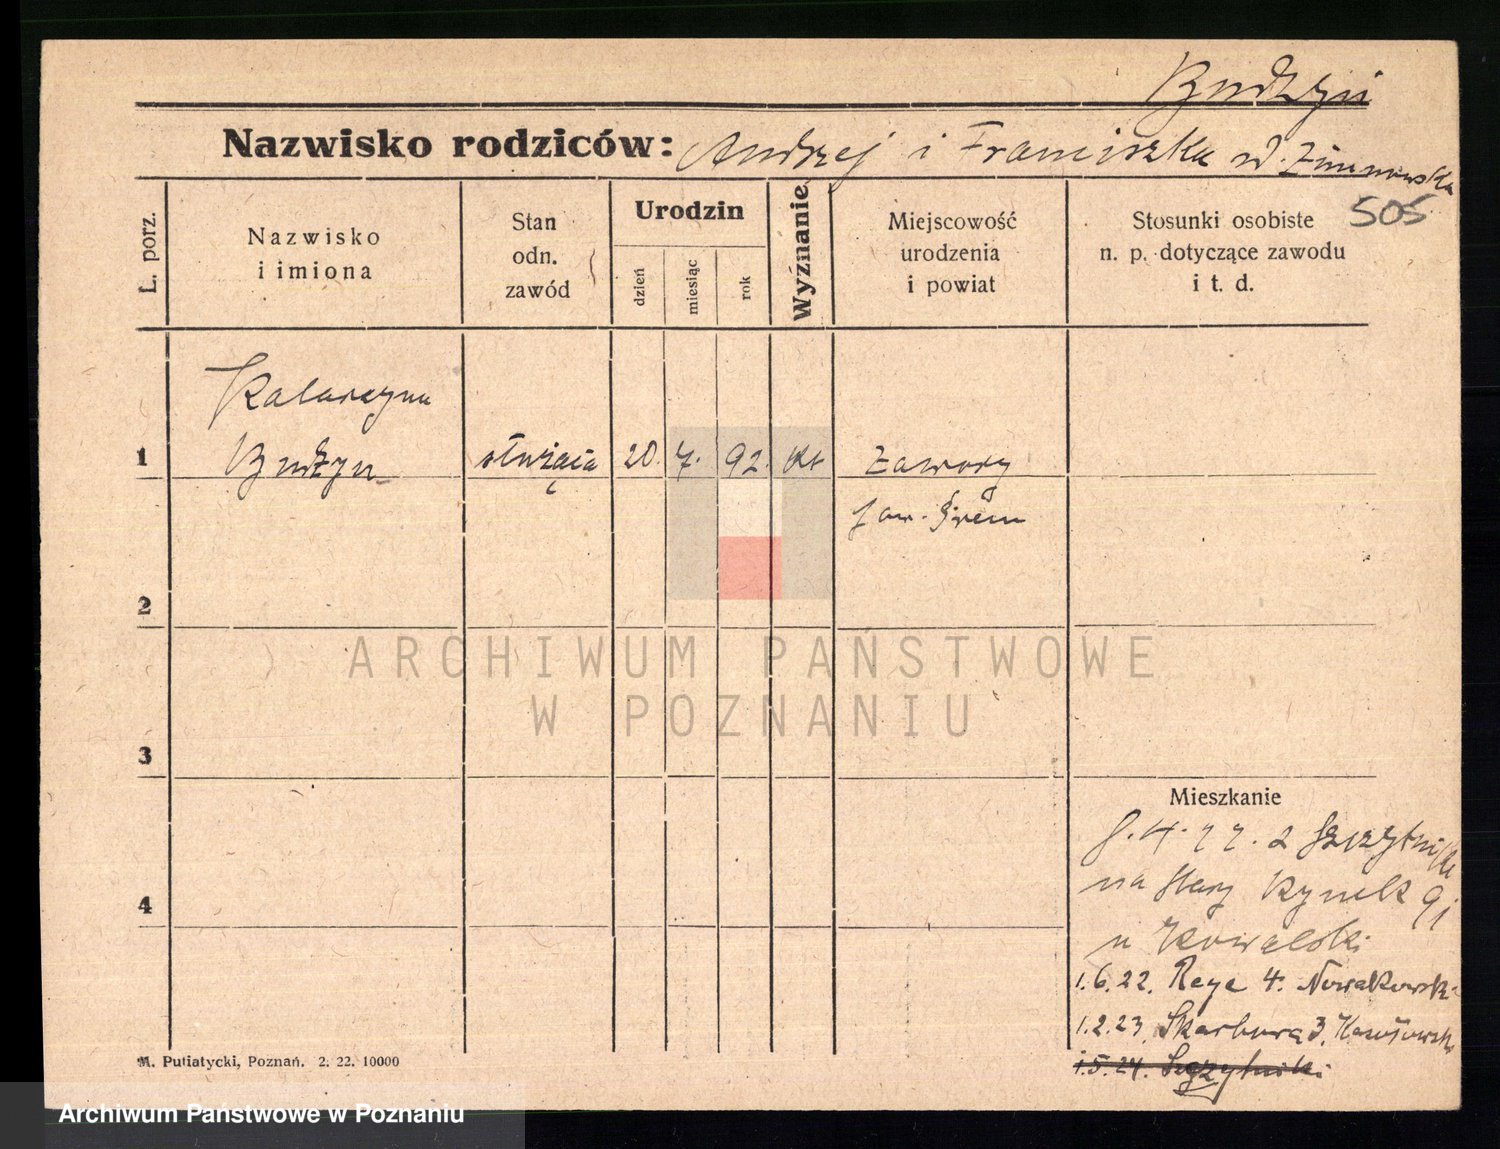 Budzyń
Nazwisko rodziców: Andrzej i Franciszka
505
L. porz.
Nazwisko
i imiona
Stan
odn.
zawód
Urodzin
dzień
miesiąc
rok
Wyznanie
Miejscowość
urodzenia
i powiat
Stosunki osobiste
n. p. dotyczące zawodu
i t. d.
Katarzyna
1 Budzyń służąca 20. 7. 92. kt Zawory
pow. Śrem
2
3
4
Mieszkanie
4. 22. z Szczytniki
na Stary Rynek 91
u Kowalski
1.6.22. Reya 4. Nowakowski
1.2.23. Skarbowa 3.
1.5.24. Szczytniki
M. Putiatycki, Poznań. 2. 22. 10000
ARCHIWUM PAŃSTWOWE
W POZNANIU
Archiwum Państwowe w Poznaniu